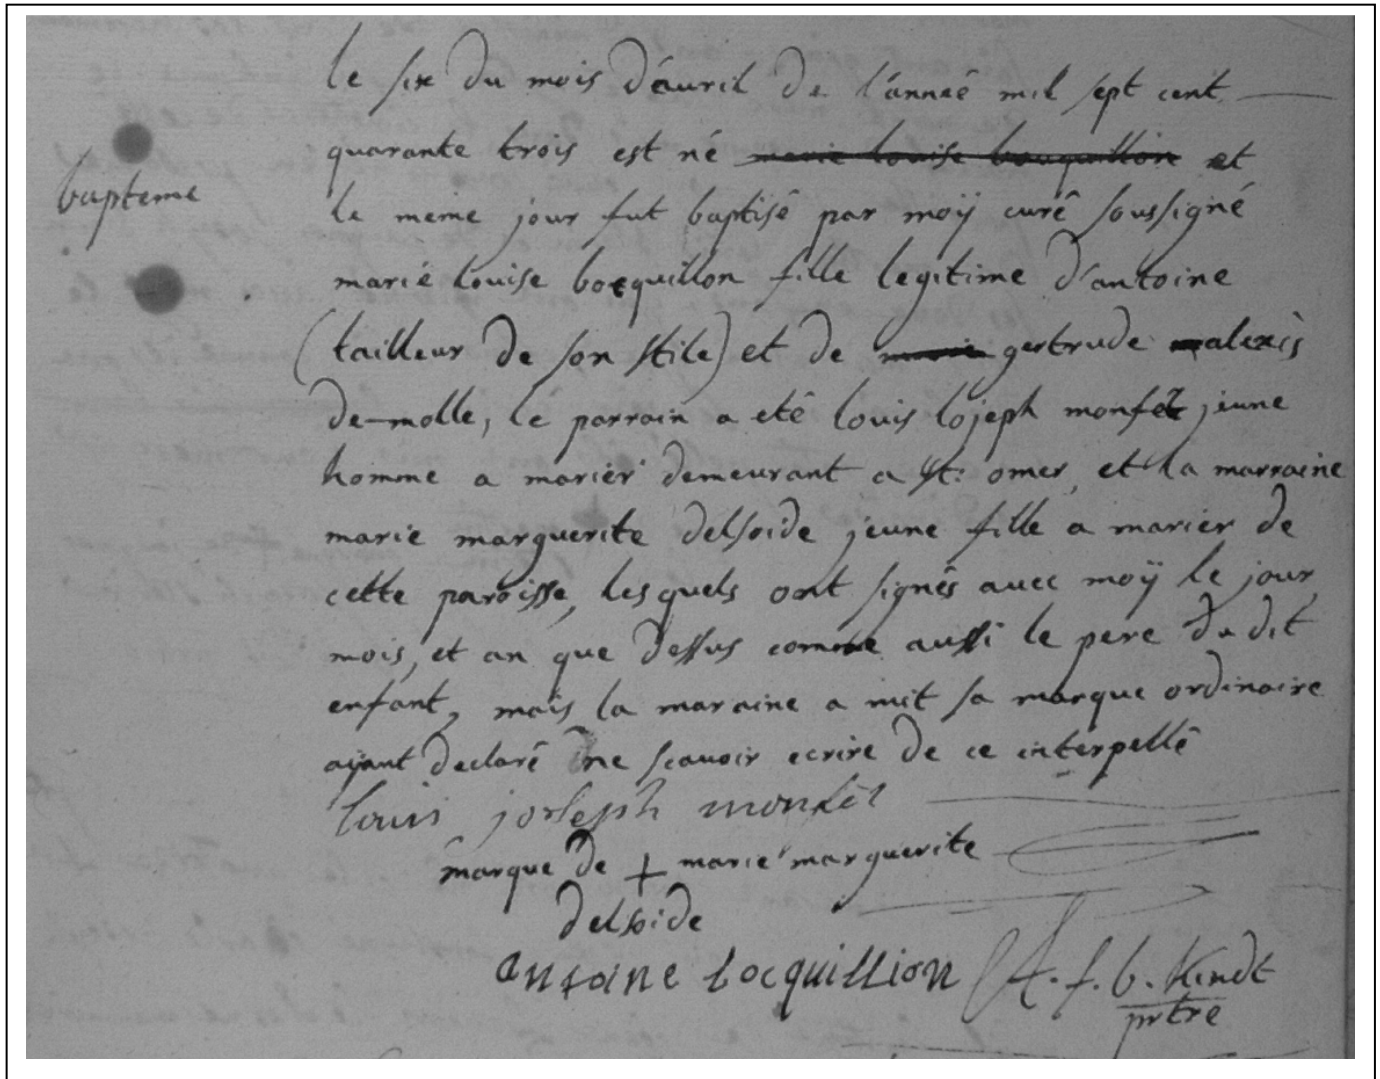 le six du mois d'âuril de l'ânneê mil sept cent
quarante trois est né marie louise bouquillon et
bapteme
le meme jour fut baptisê par moÿ curê soussigné
marié louise bocquillon fille legitime d'antoine
(tailleur de son stile) et de marie gertrude alexis
de-molle, lé parrain a etê louis Lojeph monfet jeune
homme a mariér demeurant a St: omer, et la marraine
marié marguerite delsoide jeune fille a mariér de
cette paroisse, lesquels ont signês auec moÿ le jour,
mois, et an que dessus comme aussi le pere du dit
enfant, mais la maraine a mit sa marque ordinaire
aÿant declarê ne scauoir ecrire de ce interpellê
louis joseph monfet
marque de + marie marguerite
delsoide
antoine bocquillion A. f. b. Kindt
prtre